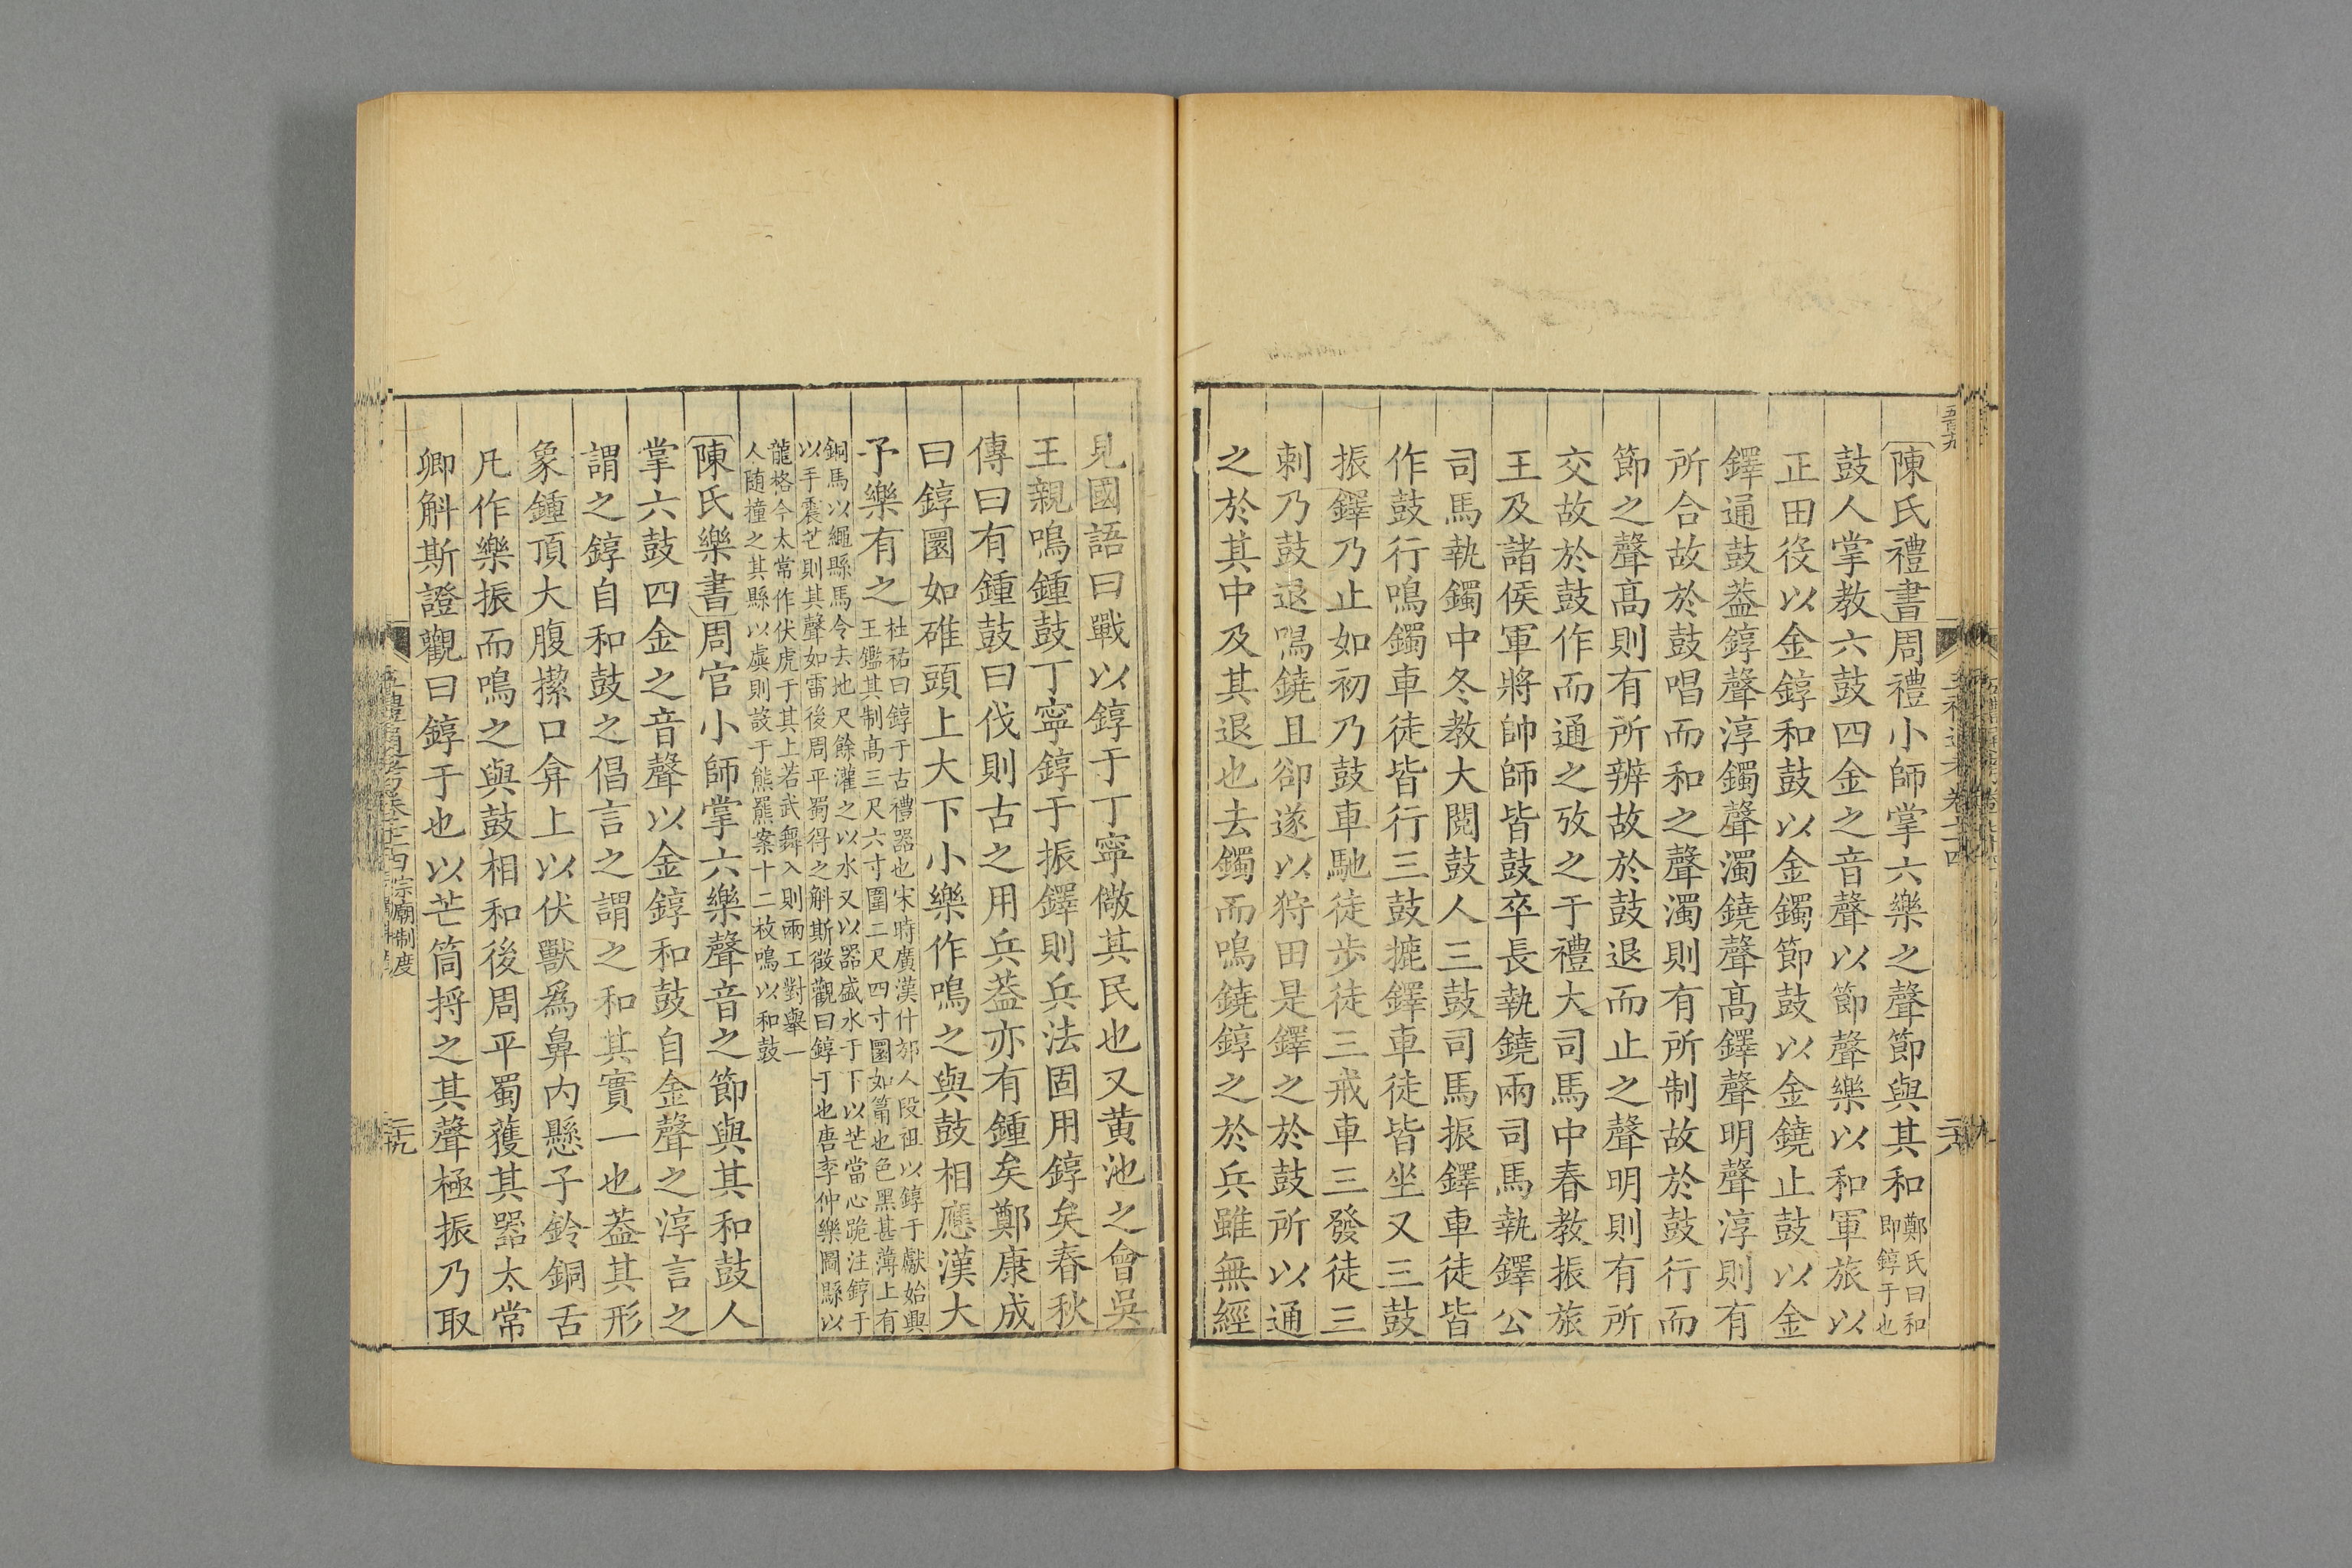 陳氏禮書周禮小師掌六樂之聲節與其和鄭氏曰和即錞于也
鼓人掌教六鼓四金之音聲以節聲樂以和軍旅以
正田役以金錞和鼓以金鐲節鼓以金鐃止鼓以金
鐸通鼓葢錞聲淳鐲聲濁鐃聲高鐸聲明聲淳則有
所合故於鼓唱而和之聲濁則有所制故於鼓行而
節之聲高則有所辨故於鼓退而止之聲明則有所
交故於鼓作而通之攷之于禮大司馬中春教振旅
王及諸侯軍將帥師皆鼓卒長執鐃兩司馬執鐸公
司馬執鐲中冬教大閱鼓人三鼓司馬振鐸車徒皆
作鼓行鳴鐲車徒皆行三鼓摝鐸車徒皆坐又三鼓
振鐸乃止如初乃鼓車馳徒步徒三戒車三發徒三
刺乃鼓退鳴鐃且卻遂以狩田是鐸之於鼓所以通
之於其中及其退也去鐲而鳴鐃錞之於兵雖無經
見國語曰戰以錞于丁寧儆其民也又黄池之會吳
王親鳴鍾鼓丁寧錞于振鐸則兵法固用錞矣春秋
傳曰有鍾鼓曰伐則古之用兵葢亦有鍾矣鄭康成
曰錞圜如碓頭上大下小樂作鳴之與鼓相應漢大
予樂有之杜祐曰錞于古禮器也宋時廣漢什邡人段祖以錞于獻始興
王鑑其制高三尺六寸圍二尺四寸圜如筩也色黑甚薄上有
銅馬以繩縣馬令去地尺餘灌之以水又以器盛水于下以芒當心跪注錞于
以手震芒則其聲如雷後周平蜀得之斛斯徵觀曰錞于也唐李仲樂圖縣以
龍格今太常作伏虎于其上若武舞入則兩工對舉一
人随撞之其縣以虡則設于熊羆案十二枚鳴以和鼓
陳氏樂書周官小師掌六樂聲音之節與其和鼓人
掌六鼓四金之音聲以金錞和鼓自金聲之淳言之
謂之錞自和鼓之倡言之謂之和其實一也葢其形
象鍾頂大腹㩧口弇上以伏獸爲鼻内懸子鈴銅舌
凡作樂振而鳴之與鼓相和後周平蜀獲其器太常
卿斛斯證觀曰錞于也以芒筒捋之其聲極振乃取
宗廟制度
五百九